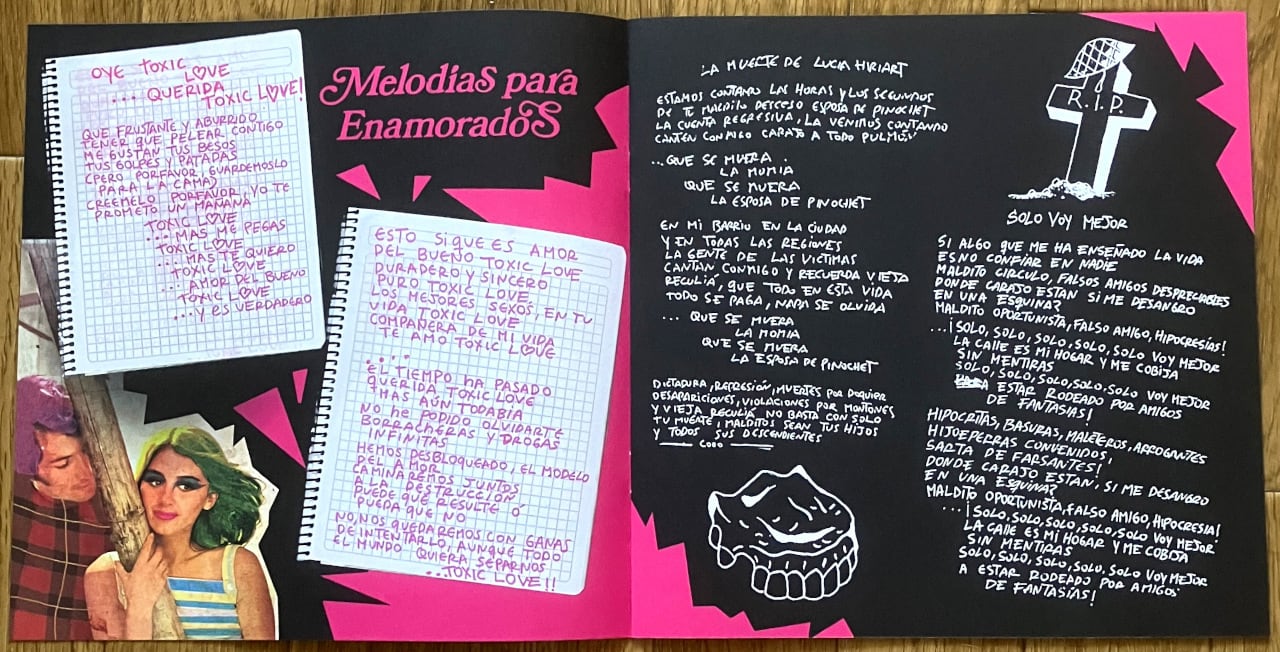 OYE TOXIC
LOVE
... QUERIDA
TOXIC LOVE!
QUE FRUSTANTE Y ABURRIDO
TENER QUE PELEAR CONTIGO
ME GUSTAN TUS BESOS
TUS GOLPES Y PATADAS
(PERO PORFAVOR, GUARDEMOSLO
PARA LA CAMA)
CREEMELO PORFAVOR, YO TE
PROMETO UN MAÑANA
TOXIC LOVE
... MAS ME PEGAS
TOXIC LOVE
... MAS TE QUIERO
TOXIC LOVE
... AMOR DEL BUENO
TOXIC LOVE
... Y ES VERDADERO
Melodias para
Enamorados
ESTO SI QUE ES AMOR
DEL BUENO TOXIC LOVE
DURADERO Y SINCERO
PURO TOXIC LOVE,
LOS MEJORES SEXOS, EN TU
VIDA TOXIC LOVE
COMPAÑERA DE MI VIDA
TE AMO TOXIC LOVE
....
EL TIEMPO HA PASADO
QUERIDA TOXIC LOVE
MAS AÚN TODABIA
NO HE PODIDO OLVIDARTE
BORRACHERAS Y DROGAS
INFINITAS
HEMOS DESBLOQUEADO, EL MODELO
DEL AMOR
CAMINAREMOS JUNTOS
A LA DESTRUCCIÓN
PUEDE QUE RESULTE Ó
PUEDA QUE NO
NO, NOS QUEDAREMOS CON GANAS
DE INTENTARLO, AUNQUE TODO
EL MUNDO QUIERA SEPARNOS
...TOXIC LOVE!!
LA MUERTE DE LUCIA HIRIART
ESTAMOS CONTANDO LAS HORAS Y LOS SEGUNDOS
DE TE MALDITO DECESO ESPOSA DE PINOCHET
LA CUENTA REGRESIVA, LA VENIMOS CONTANDO
CANTEN CONMIGO CARAJO A TODO PULMÓN
...QUE SE MUERA
LA MOMIA
QUE SE MUERA
LA ESPOSA DE PINOCHET
EN MI BARRIO EN LA CIUDAD
Y EN TODAS LAS REGIONES
LA GENTE DE LAS VICTIMAS
CANTAN, CONMIGO Y RECUERDA VIEJA
RECULIÁ, QUE TODO EN ESTA VIDA
TODO SE PAGA, NADA SE OLVIDA
... QUE SE MUERA
LA MOMIA
QUE SE MUERA
LA ESPOSA DE PINOCHET
DICTADURA, REPRESIÓN, MUERTES POR DOQUIER
DESAPARICIONES, VIOLACIONES POR MONTONES
Y VIEJA RECULIÁ NO BASTA CON SOLO
TU MUERTE, MALDITOS SEAN TUS HIJOS
Y TODOS SUS DESCENDIENTES
CORO
R.I.P.
SOLO VOY MEJOR
SI ALGO QUE ME HA ENSEÑADO LA VIDA
ES NO CONFIAR EN NADIE
MALDITO CIRCULO, FALSOS AMIGOS DESPRECIABLES
DONDE CARAJO ESTAN SI ME DESANGRO
EN UNA ESQUINA?
MALDITO OPORTUNISTA, FALSO AMIGO, HIPOCRESIAS!
...¡SOLO, SOLO, SOLO, SOLO, SOLO VOY MEJOR
LA CALLE ES MI HOGAR Y ME COBIJA
SIN MENTIRAS
SOLO, SOLO, SOLO, SOLO, SOLO VOY MEJOR
A ESTAR RODEADO POR AMIGOS
DE FANTASIAS!
HIPOCRITAS, BASURAS, MALETEROS, ARROGANTES
HIJOEPERRAS CONVENIDOS,
SARTA DE FARSANTES!
DONDE CARAJO ESTAN, SI ME DESANGRO
EN UNA ESQUINA?
MALDITO OPORTUNISTA, FALSO AMIGO, HIPOCRESIA!
...¡SOLO, SOLO, SOLO, SOLO, SOLO VOY MEJOR
LA CALLE ES MI HOGAR Y ME COBIJA
SIN MENTIRAS
SOLO, SOLO, SOLO, SOLO, SOLO VOY MEJOR
A ESTAR RODEADO POR AMIGOS
DE FANTASÍAS!